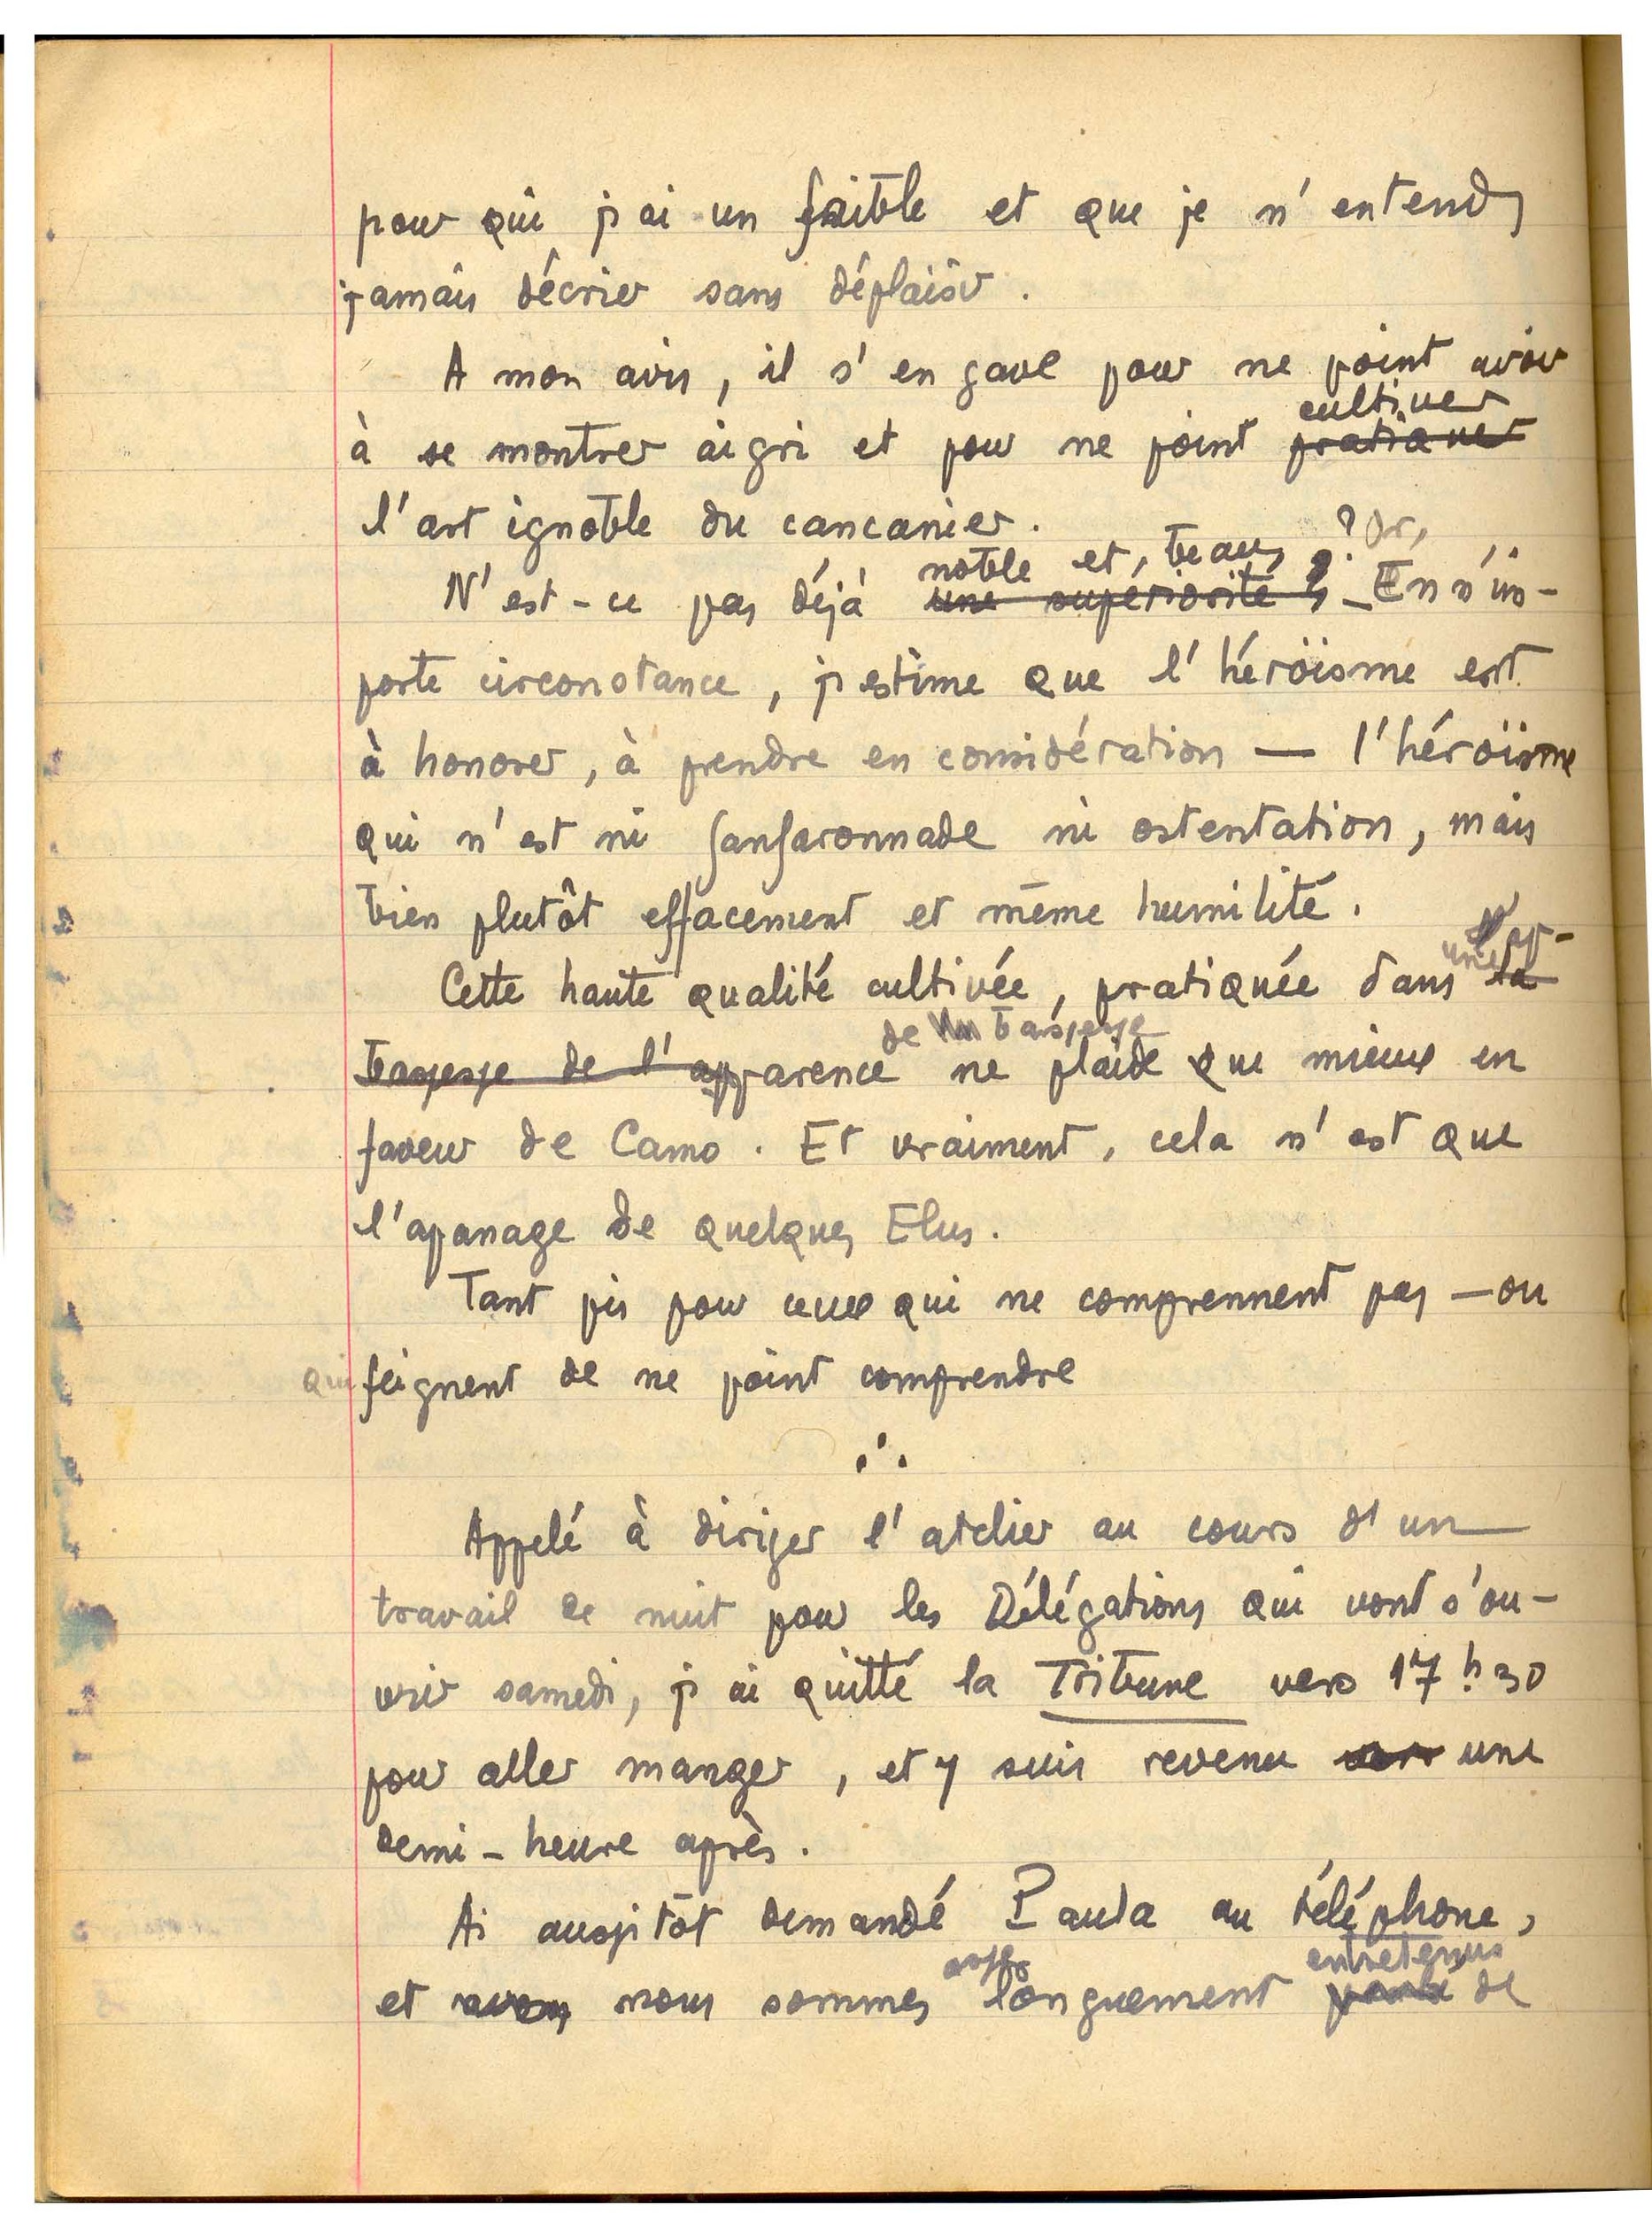 pour qui j'ai un faible et que je n'entends
jamais décrier sans déplaisir.
A mon avis, il s'en gave pour ne point avoir
cultiver
à se montrer aigri et pour ne point pratiquer
l'art ignoble du cancanier.
noble et, beau, ? Or,
N'est-ce pas déjà une supériorité ? – En n'im-
porte circonstance, j'estime que l'héroïsme est
à honorer, à prendre en considération — l'héroïsme
qui n'est ni fanfaronnade ni ostentation, mais
bien plutôt effacement et même humilité.
une ap-
Cette haute qualité cultivée, pratiquée dans la
de bassesse
bassesse de l'apparence ne plaide que mieux en
faveur de Camo. Et vraiment, cela n'est que
l'apanage de quelques Elus.
Tant pis pour ceux qui ne comprennent pas — ou
qui feignent de ne point comprendre
∴
Appelé à diriger l'atelier au cours d'un
travail de nuit pour les Délégations qui vont s'ou-
vrir samedi, j'ai quitté la Tribune vers 17 h 30
pour aller manger, et y suis revenu une
demi-heure après.
Ai aussitôt demandé Paula au téléphone,
assez entretenus
et avons nous sommes longuement parlé de